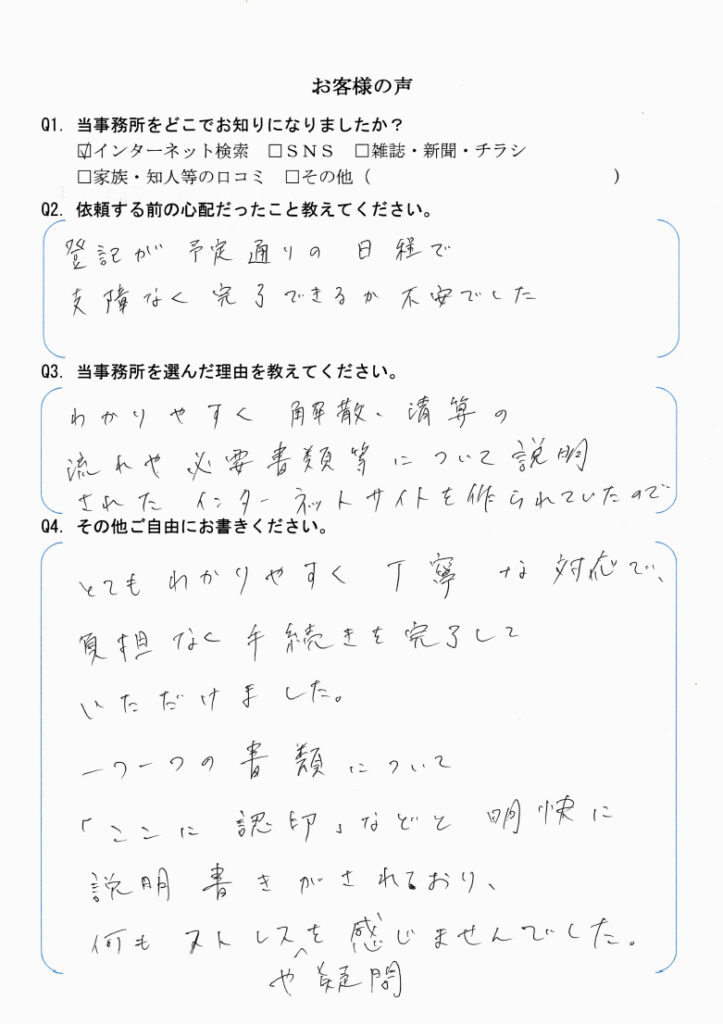 お客様の声
Q1. 当事務所をどこでお知りになりましたか？
☑インターネット検索 □ＳＮＳ □雑誌・新聞・チラシ
□家族・知人等の口コミ □その他（ ）
Q2. 依頼する前の心配だったこと教えてください。
登記が予定通りの日程で
支障なく完了できるか不安でした
Q3. 当事務所を選んだ理由を教えてください。
わかりやすく解散、清算の
流れや必要書類等について説明
されたインターネットサイトを作られていたので
Q4. その他ご自由にお書きください。
とてもわかりやすく丁寧な対応で、
負担なく手続きを完了して
いただけました。
一つ一つの書類について
「ここに認印」などと明快に
説明書きがされており、
何もストレスを感じませんでした。
や疑問